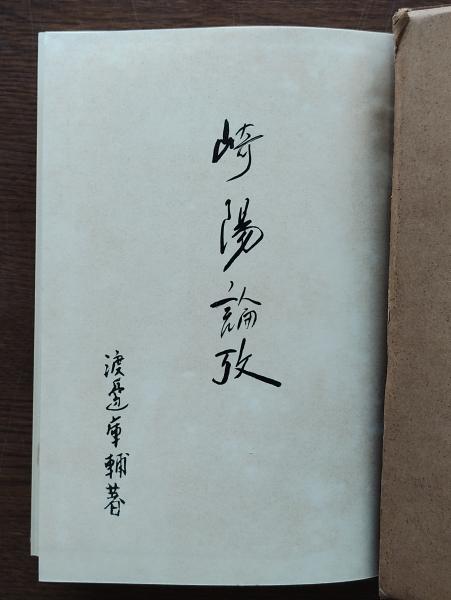 崎陽論攷
渡邊庫輔著